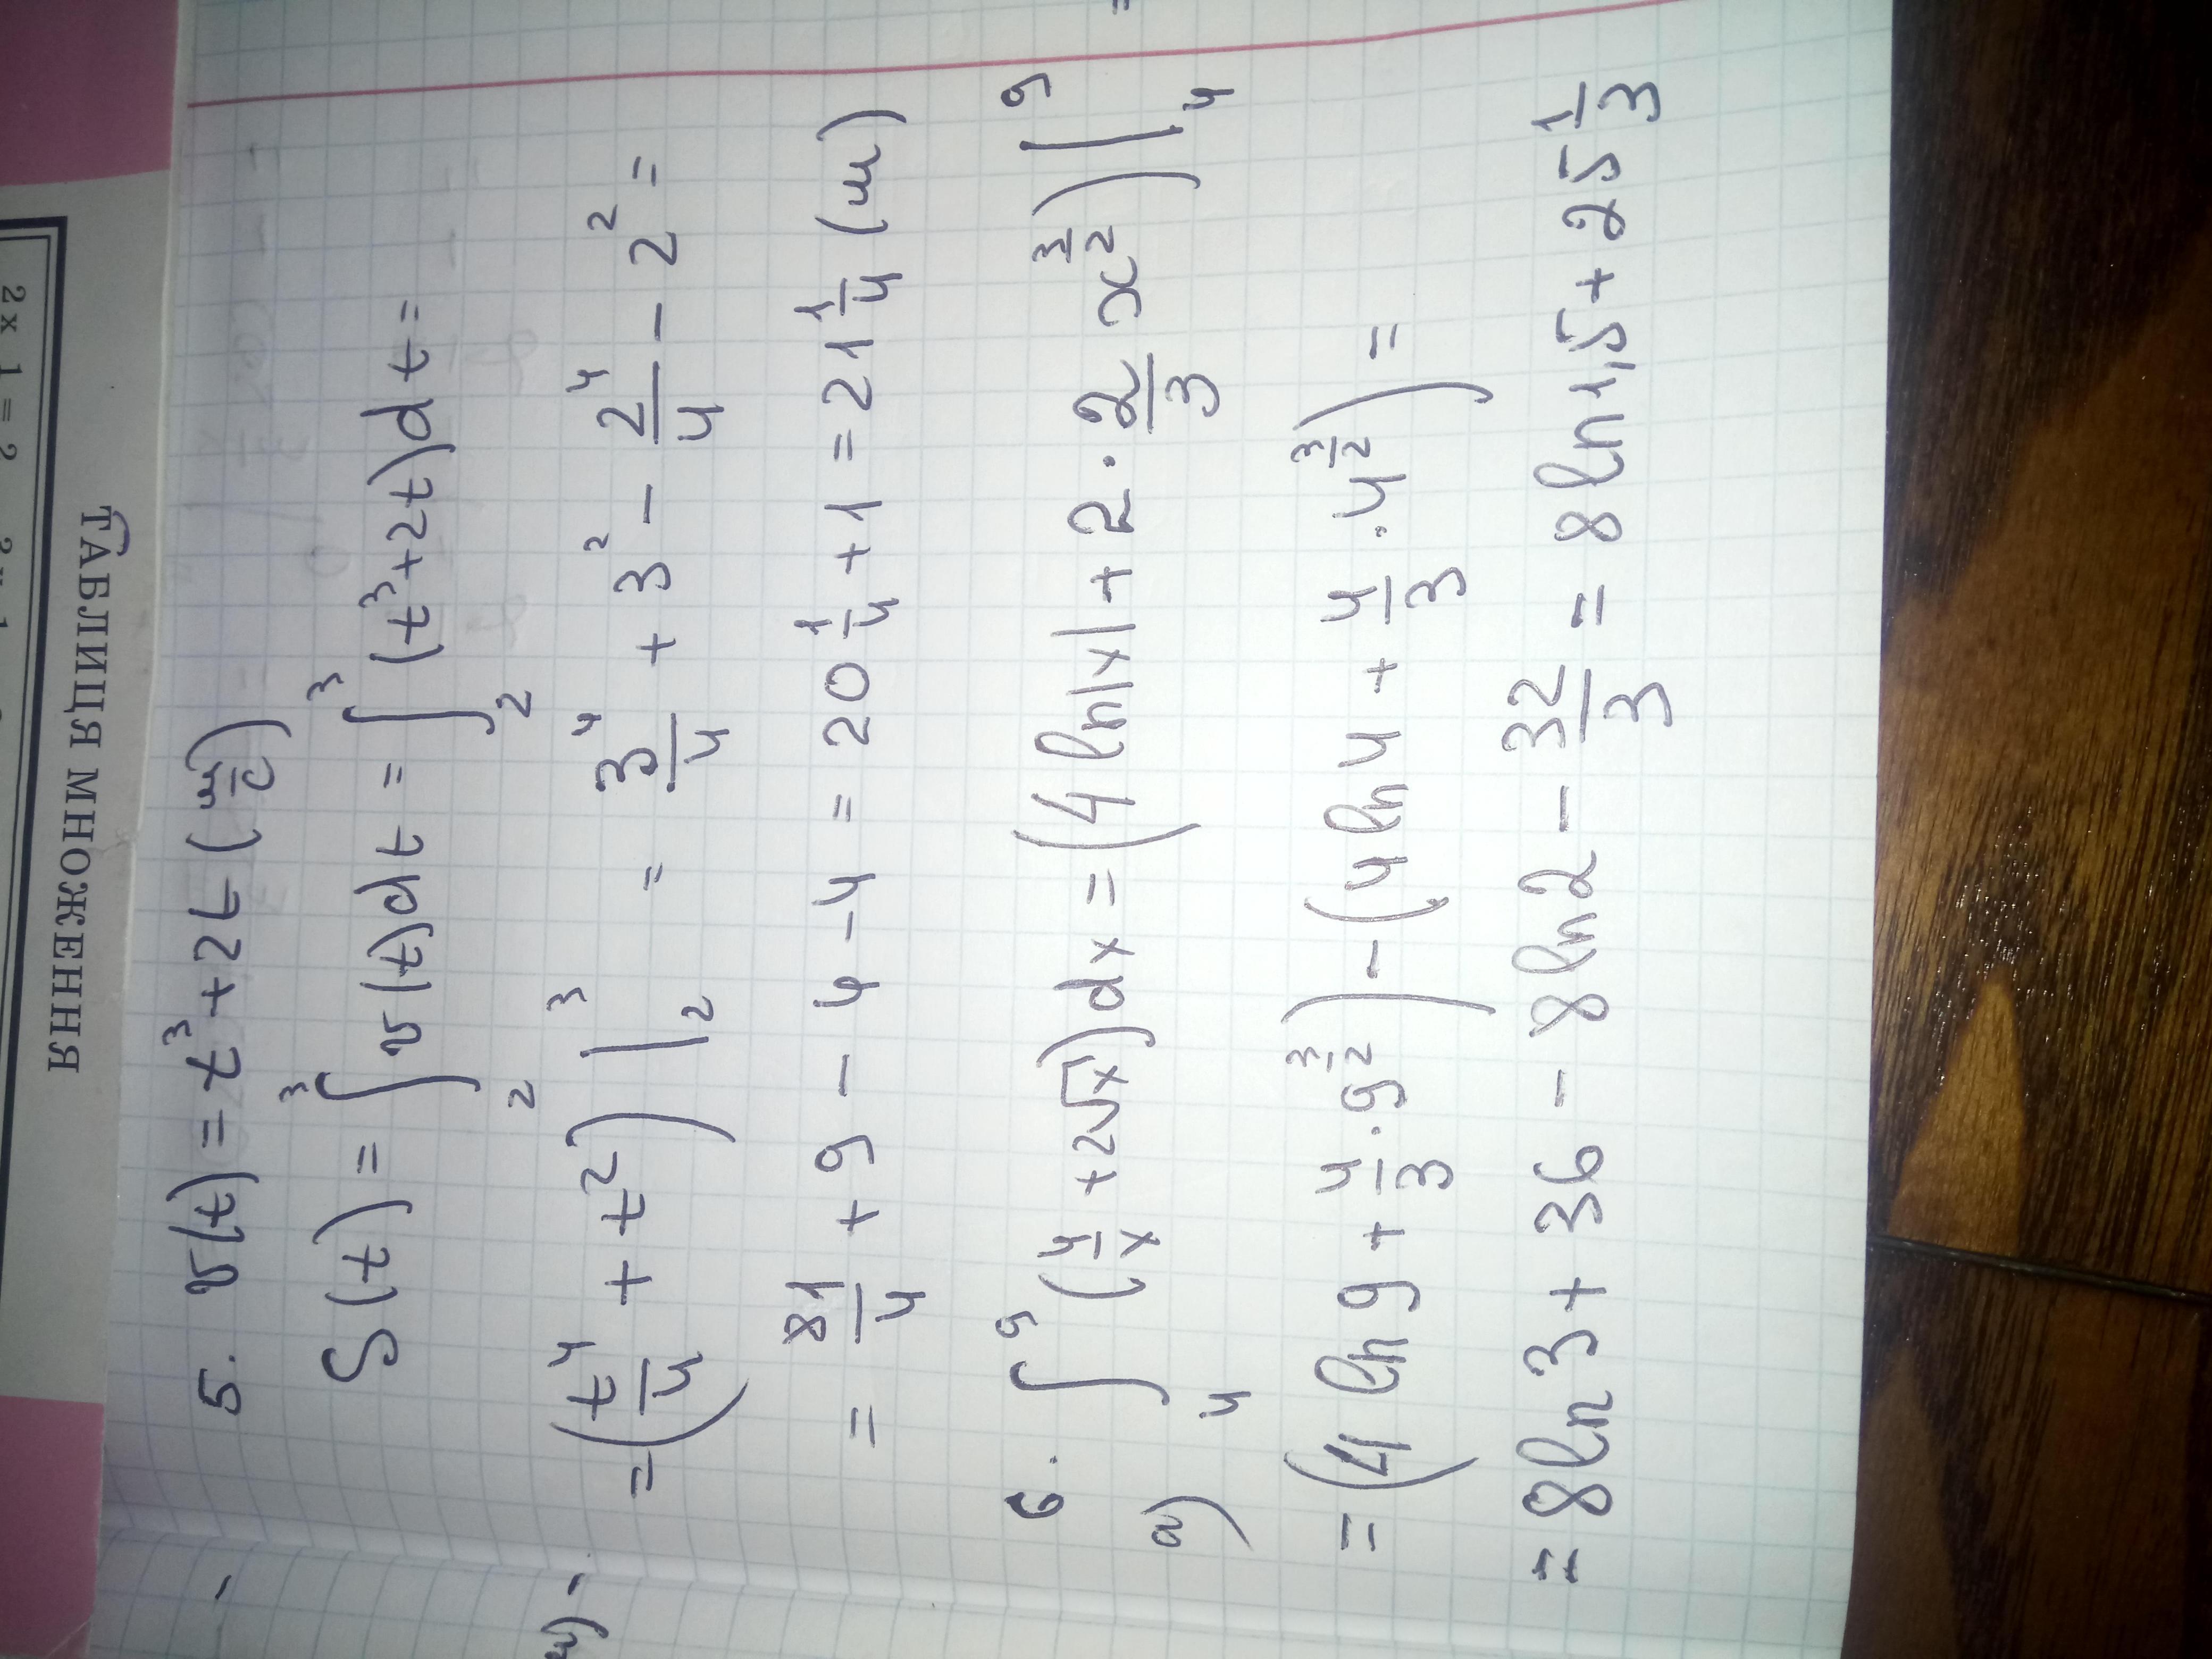 ТАБЛИЦЯ МНОЖЕННЯ
2 x 1 = 2
5. v(t) = t³ + 2t (м/с)
S(t) = ∫₂³ v(t)dt = ∫₂³ (t³+2t)dt =
= (t⁴/4 + t²)|₂³ = 3⁴/4 + 3² - 2⁴/4 - 2² =
= 81/4 + 9 - 4 - 4 = 20 1/4 + 1 = 21 1/4 (м)
6.
а) ∫₄⁹ (4/x + 2√x)dx = (4 ln|x| + 2 · 2/3 x^(3/2))|₄⁹
= (4 ln 9 + 4/3 · 9^(3/2)) - (4 ln 4 + 4/3 · 4^(3/2)) =
= 8 ln 3 + 36 - 8 ln 2 - 32/3 = 8 ln 1,5 + 25 1/3